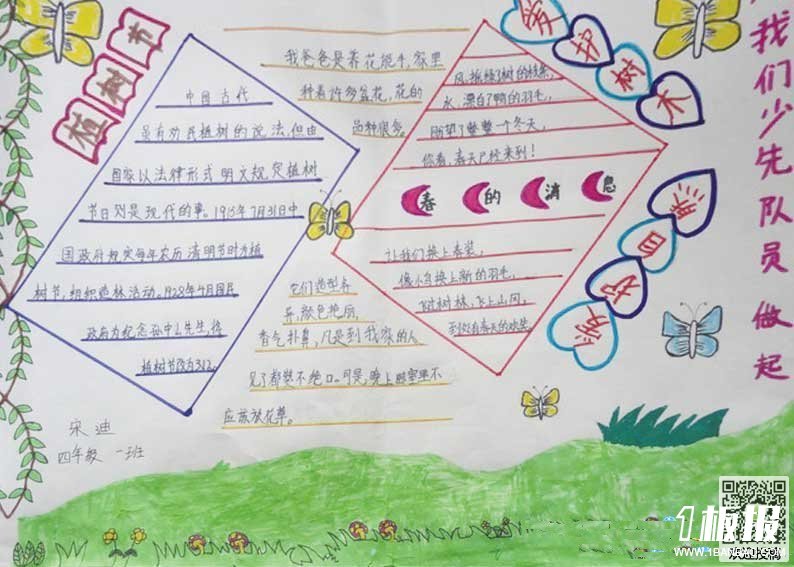 植树节
中国古代
虽有劝民植树的说法,但由
国家以法律形式明文规定植树
节日则是现代的事。1915年7月31日中
国政府规定每年农历清明节时为植
树节,组织造林活动,1928年4月国民
政府为纪念孙中山先生,将
植树节改为3.12。
宋迪
四年级 一班
我爸爸是养花能手,家里
种着许多盆花,花的
品种很多。
它们造型各
异,颜色艳丽,
香气扑鼻,凡是到我家的人
见了都赞不绝口。可是,晚上卧室里不
应该放花草。
风,摇绿了树的枝条,
水,漂白了鸭的羽毛,
盼望了整整一个冬天,
你看,春天已经来到!
春的消息
让我们换上春装,
像小鸟换上新的羽毛,
飞过树林,飞上山冈,
到处有春天的欢笑。
爱护树木
我们少先队员做起
1板报
WWW.1BANBAO.COM